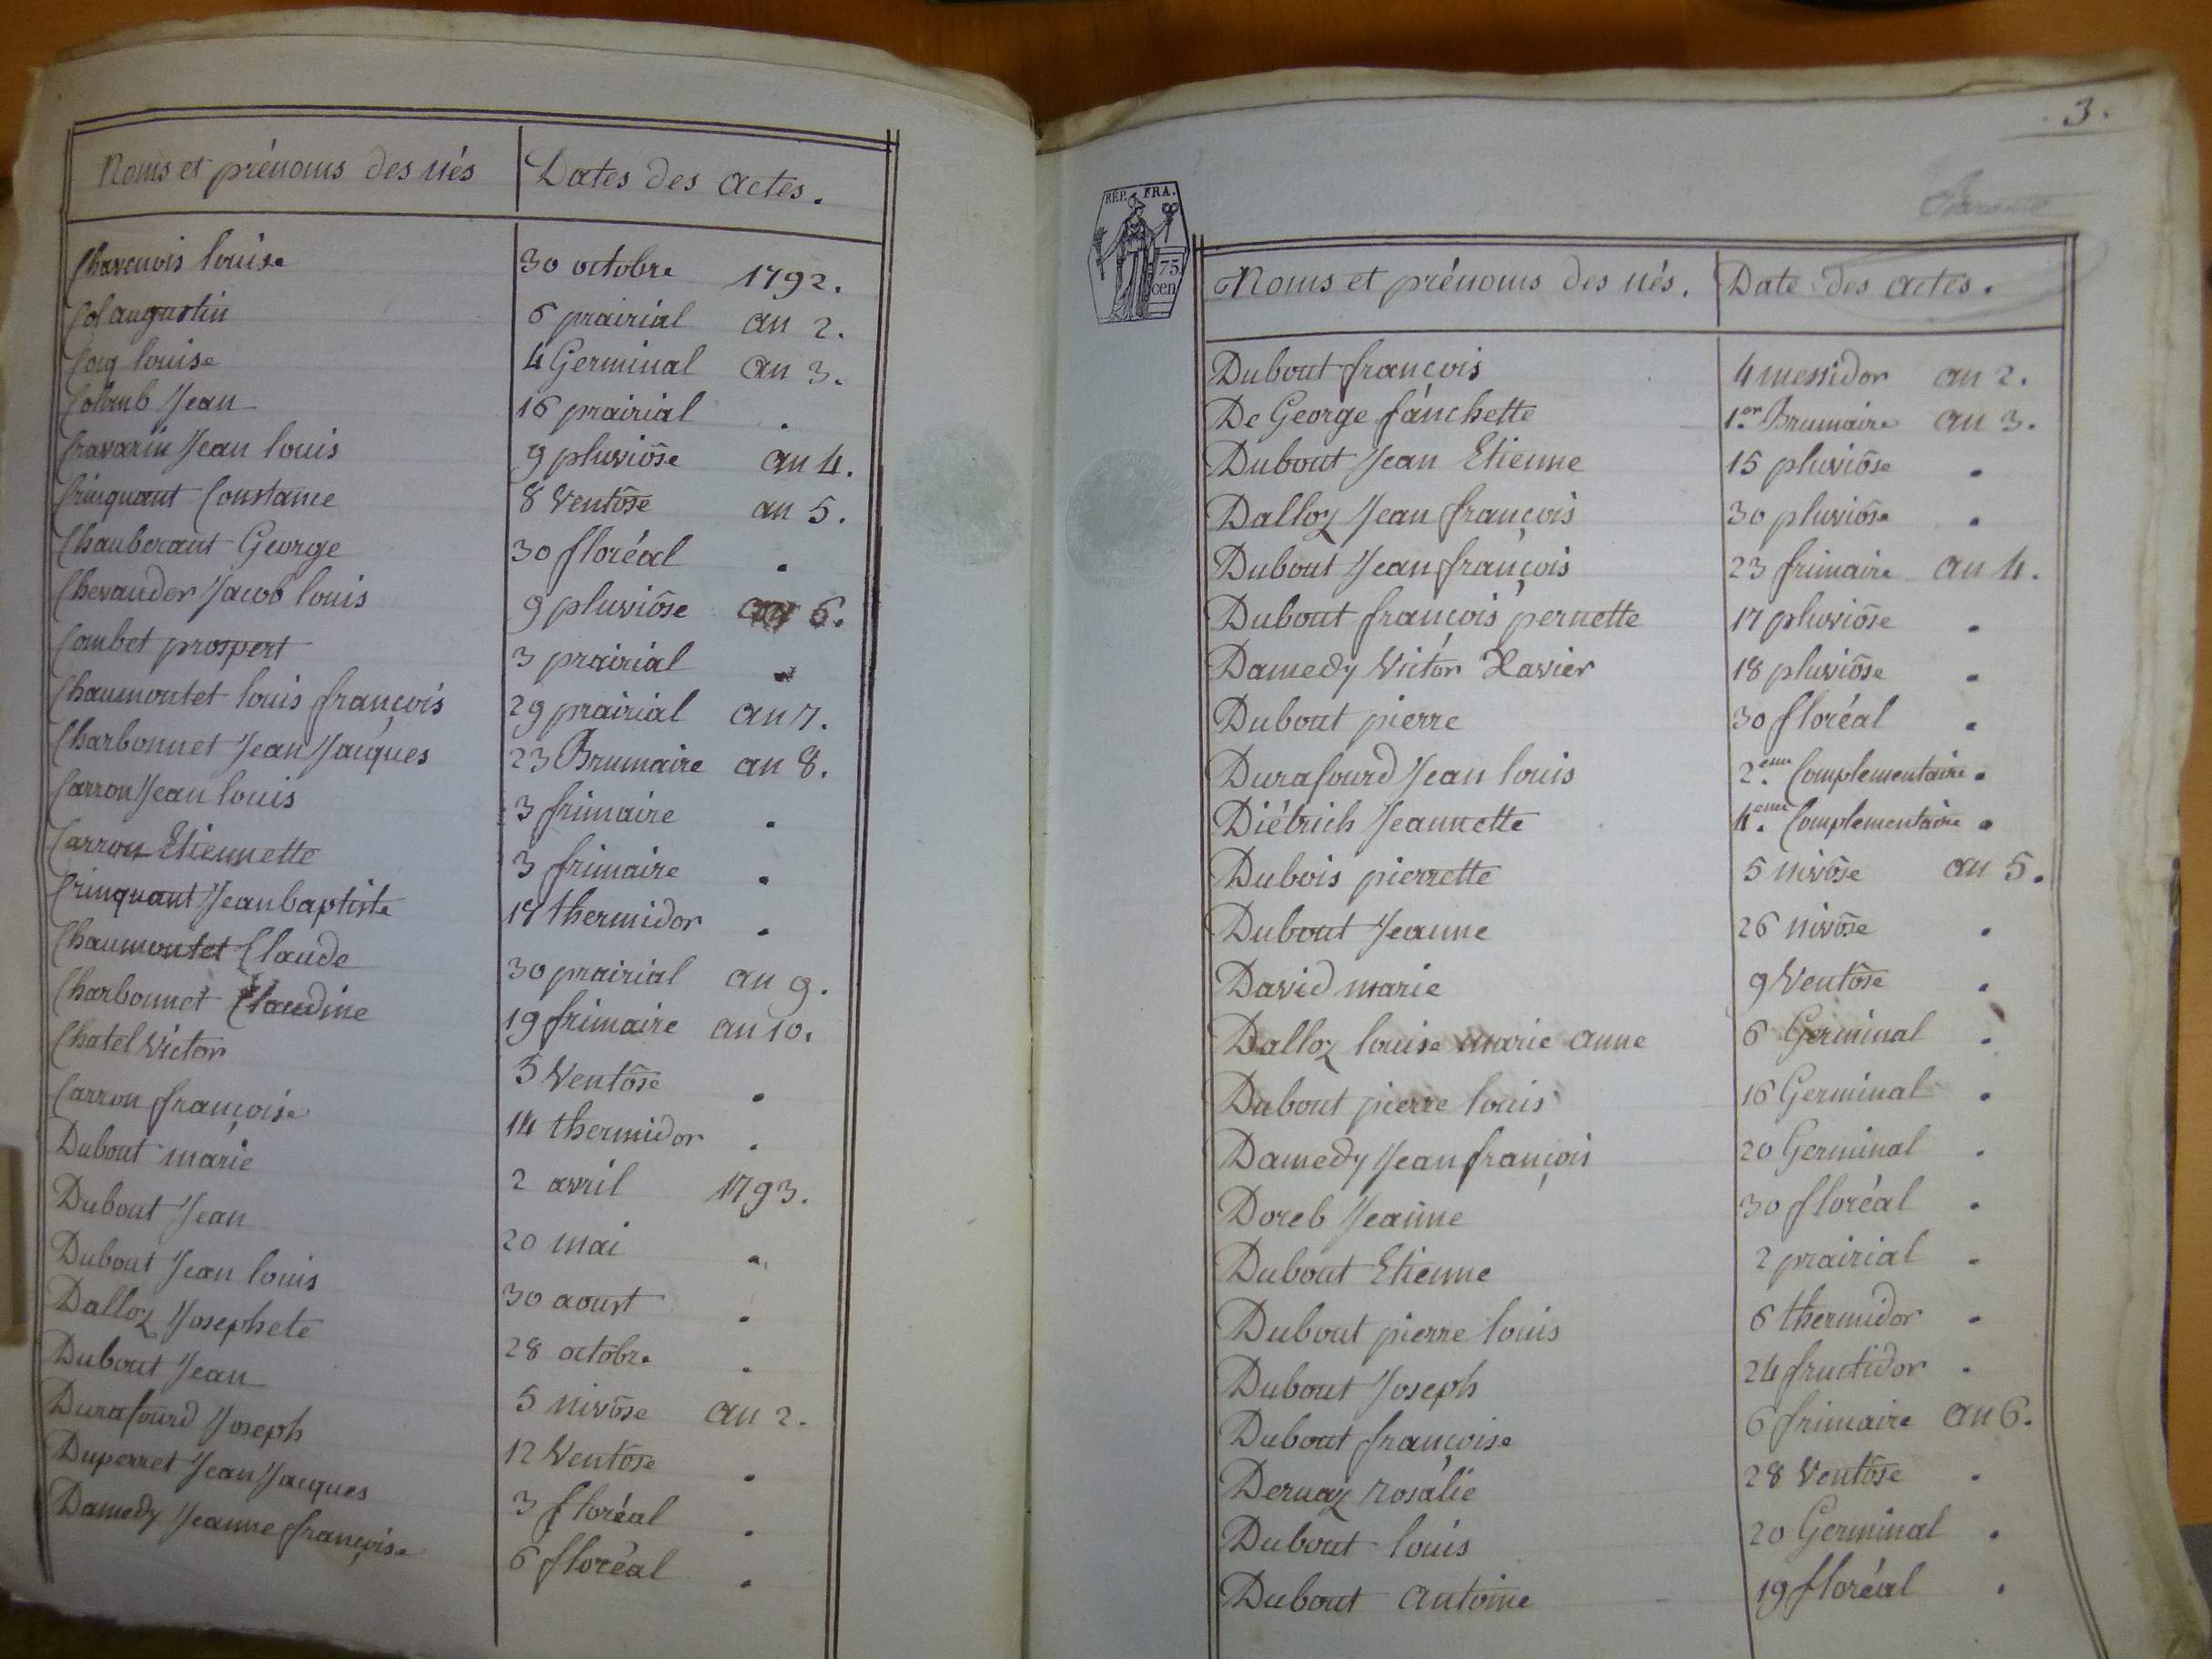 Noms et prénoms des nés Dates des actes.
Charenois louise 30 octobre 1792.
Col augustin 6 prairial an 2.
Coig louise 4 Germinal an 3.
Colomb Jean 16 prairial .
Cravarin Jean louis 9 pluviôse an 4.
Crinquant Constance 8 Ventôse an 5.
Chauberant George 30 floréal .
Chevauder Jacob louis 9 pluviôse an 6.
Combet prospert 3 prairial .
Chaumontet louis françois 29 prairial an 7.
Charbonnet Jean Jacques 23 Brumaire an 8.
Carron Jean louis 3 frimaire .
Carron Etiennette 3 frimaire .
Crinquant Jean baptiste 18 thermidor .
Chaumontet Claude 30 prairial an 9.
Charbonnet Claudine 19 frimaire an 10.
Chatel Victor 5 Ventôse .
Carron françoise 14 thermidor .
Dubout marie 2 avril 1793.
Dubout Jean 20 mai .
Dubout Jean louis 30 aoust .
Dalloz Josephete 28 octobre .
Dubout Jean 5 nivôse an 2.
Durafourd Joseph 12 Ventôse .
Duperret Jean Jacques 3 floréal .
Damedy Jeanne françoise 6 floréal .
3.
REP. FRA.
75
cen
Noms et prénoms des nés. Date des actes.
Dubout françois 4 messidor an 2.
De George fanchette 1.er Brumaire an 3.
Dubout Jean Etienne 15 pluviôse .
Dalloz Jean françois 30 pluviôse .
Dubout Jean françois 23 frimaire an 4.
Dubout françois pernette 17 pluviôse .
Damedy Victor Xavier 18 pluviôse .
Dubout pierre 30 floréal .
Durafourd Jean louis 2.eme Complementaire .
Diétrich Jeannette 4.eme Complementaire .
Dubois pierrette 5 nivôse an 5.
Dubout Jeanne 26 nivôse .
David marie 9 Ventôse .
Dalloz louise marie anne 6 Germinal .
Dubout pierre louis 16 Germinal .
Damedy Jean françois 20 Germinal .
Doreb Jeanne 30 floréal .
Dubout Etienne 2 prairial .
Dubout pierre louis 6 thermidor .
Dubout Joseph 24 fructidor .
Dubout françoise 6 frimaire an 6.
Dernaz rosalie 28 Ventôse .
Dubout louis 20 Germinal .
Dubout antoine 19 floréal .